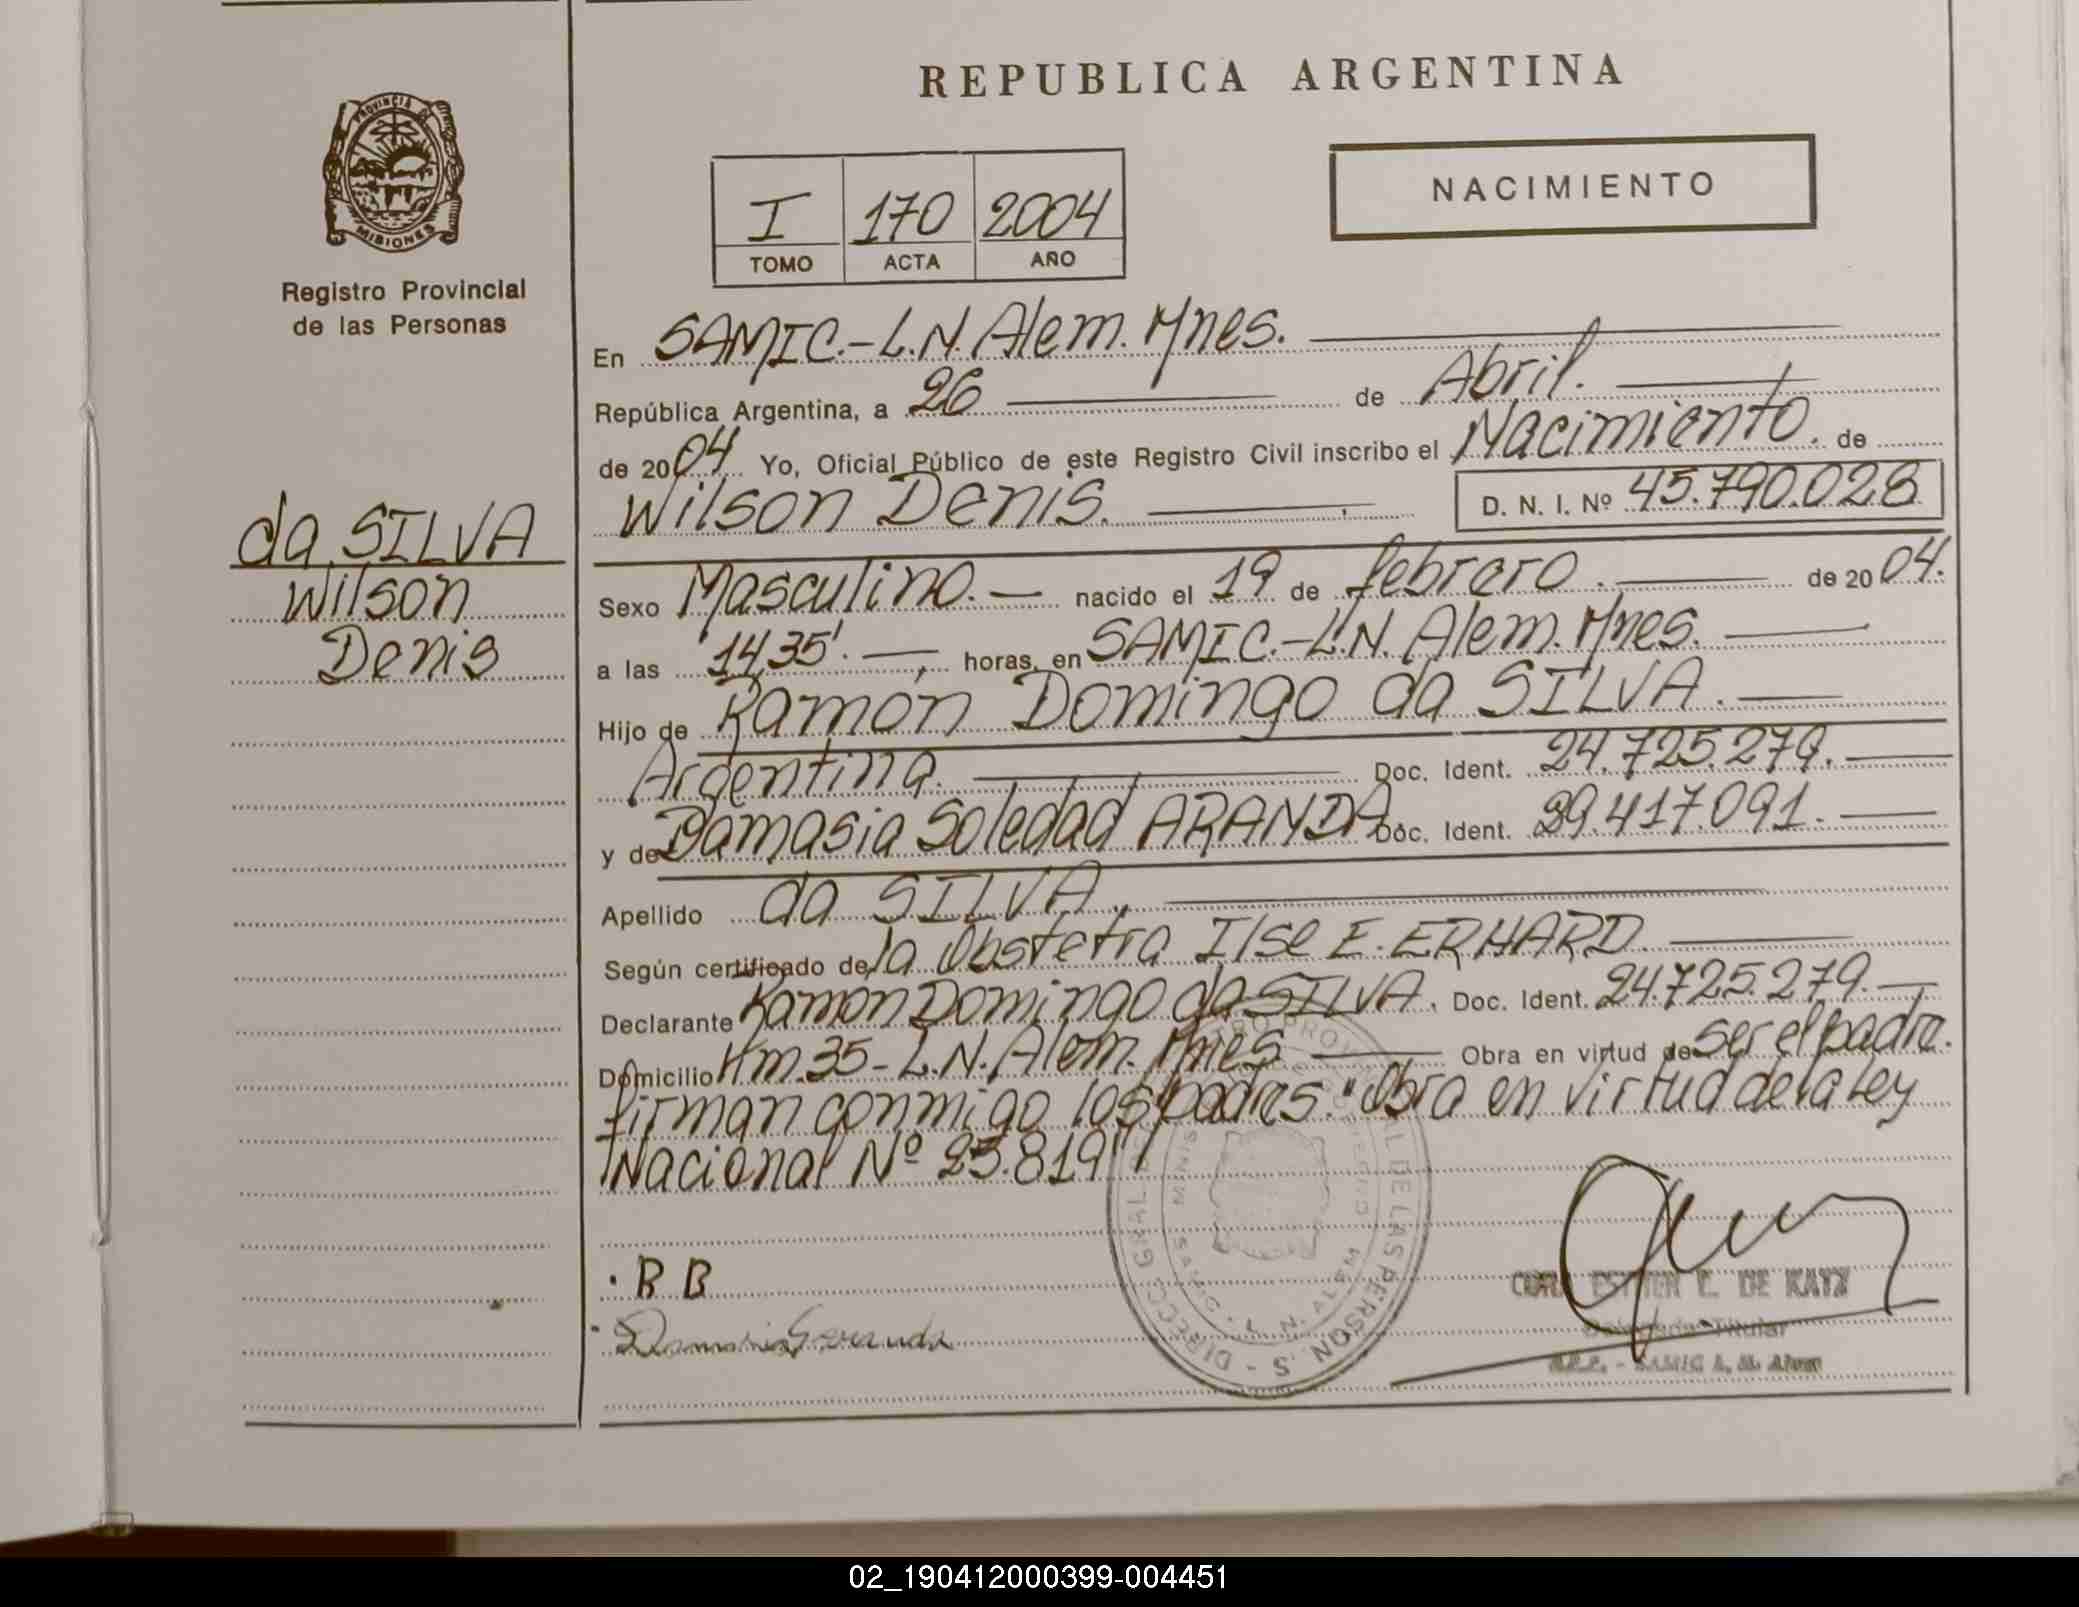 REPUBLICA ARGENTINA
PROVINCIA DE
MISIONES
Registro Provincial
de las Personas
I 170 2004
TOMO ACTA AÑO
NACIMIENTO
da SILVA
Wilson
Denis
En SAMIC.-L.N. Alem. Mnes.
República Argentina, a 26 de Abril.
de 2004 Yo, Oficial Público de este Registro Civil inscribo el Nacimiento. de
Wilson Denis. D. N. I. Nº 45.790.028
Sexo Masculino. nacido el 19 de febrero. de 2004.
a las 14,35'. horas, en SAMIC.-L.N. Alem. Mnes.
Hijo de Ramón Domingo da SILVA.
Argentina. Doc. Ident. 24.725.279.
y de Damasia Soledad ARANDA Doc. Ident. 29.417.091.
Apellido da SILVA.
Según certificado de la Obstetra Ilse E. ERHARD.
Declarante Ramón Domingo da SILVA. Doc. Ident. 24.725.279.
Domicilio Km.35-L.N. Alem. Mnes. Obra en virtud de ser el padre.
firman conmigo los padres. "Obra en virtud de la Ley
Nacional Nº 25.819"
. B B
DE KATZ
Delegada Titular
R.P.P. - SAMIC L. N. Alem
02_190412000399-004451